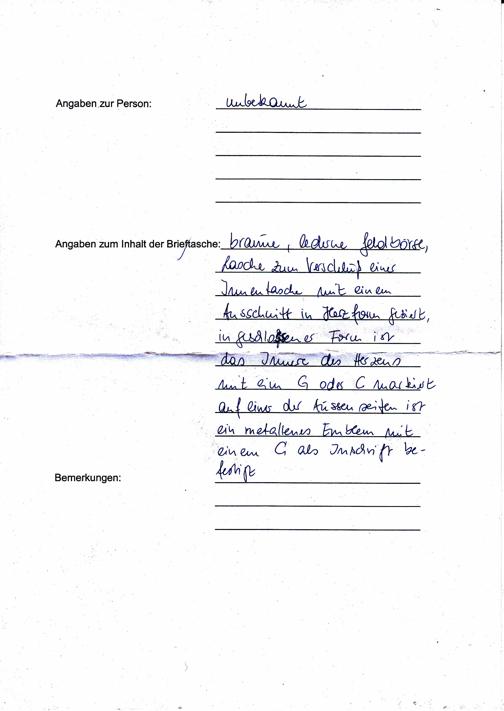 Angaben zur Person: unbekannt
Angaben zum Inhalt der Brieftasche: braune, lederne Geldbörse,
Lasche zum Verschluß einer
Innentasche mit einem
Ausschnitt in Herzform geziert,
in geschlossener Form ist
das Innere des Herzens
mit ein G oder C markiert
auf einer der Aussenseiten ist
ein metallenes Emblem mit
einem G als Inschrift be-
festigt
Bemerkungen: